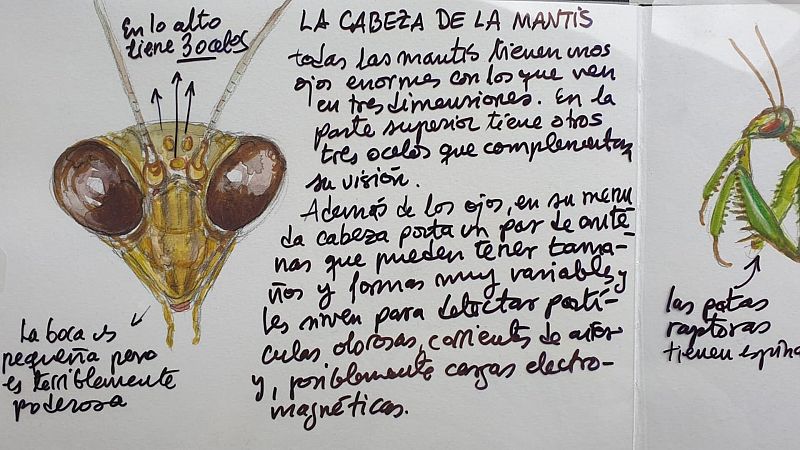 En lo alto
tiene 3 ocelos
LA CABEZA DE LA MANTIS
todas las mantis tienen unos
ojos enormes con los que ven
en tres dimensiones. En la
parte superior tiene otros
tres ocelos que complementan
su visión.
Además de los ojos, en su menu
da cabeza porta un par de anté-
nas que pueden tener tama-
ños y formas muy variables y
les sirven para detectar partí-
culas olorosas, corrientes de aire
y, posiblemente cargas electro-
magnéticas.
La boca es
pequeña pero
es terriblemente
poderosa
las patas
raptoras
tienen espina